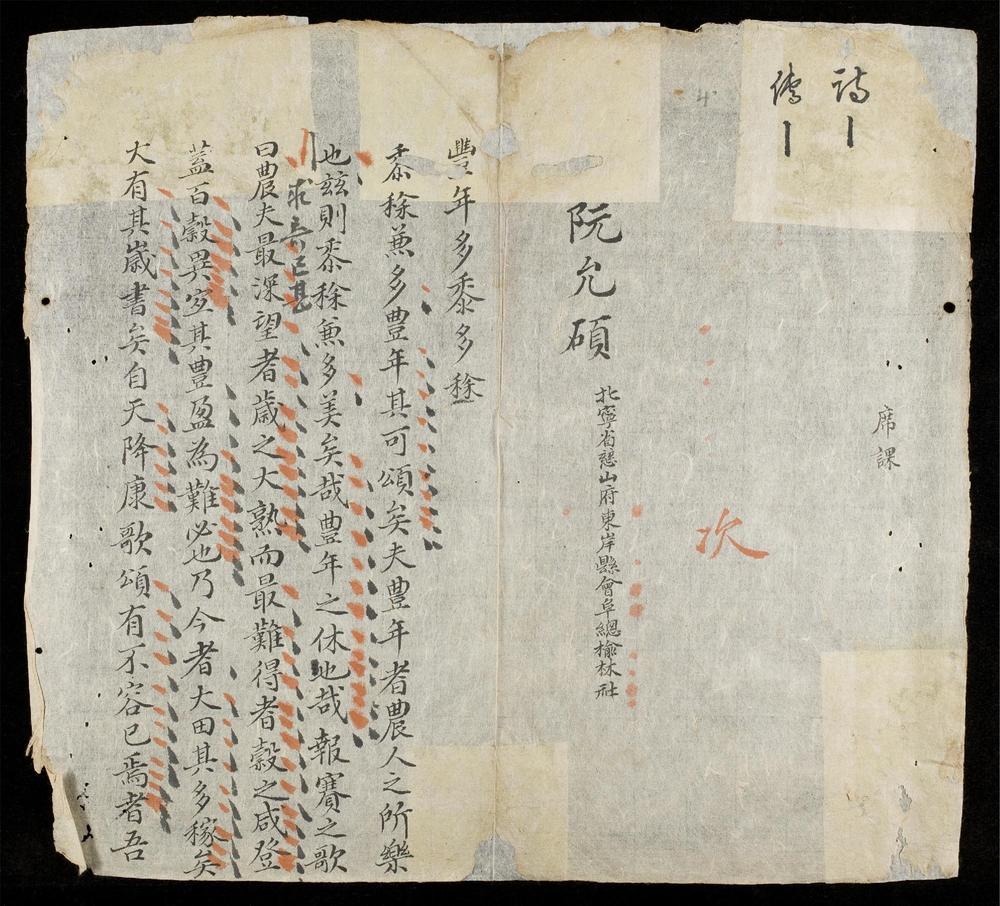 詩
傳
席課
次
阮允碩
北寧省慈山府東岸縣會阜總榆林社
豐年多黍多稌
黍稌兼多豊年其可頌矣夫豊年者農人之所樂
也兹則黍稌兼多美矣哉豊年之休也哉報賽之歌
求言已甚
曰農夫最深望者歲之大熟而最難得者穀之咸登
蓋百穀異宜其豊盈為難必也乃今者大田其多稼矣
大有其歲書矣自天降康歌頌有不容已焉者吾